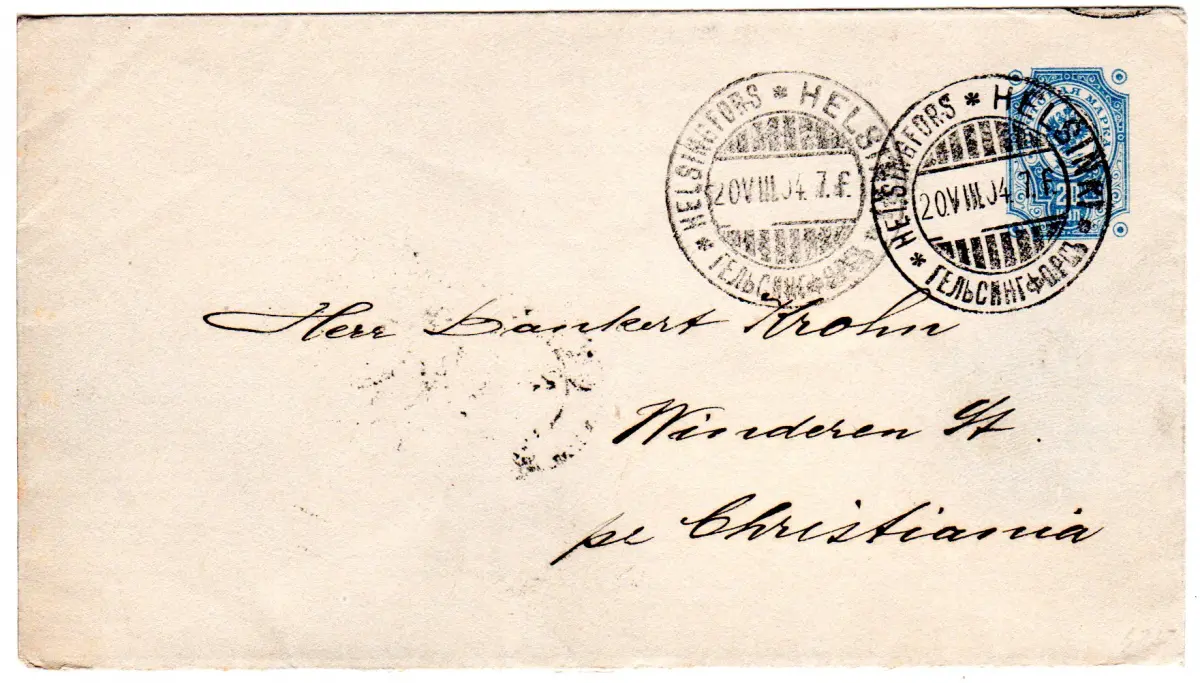 HELSINGFORS * HELSINKI * ГЕЛЬСИНГФОРСЪ *
20.VIII.04. 7.f.
HELSINGFORS * HELSINKI * ГЕЛЬСИНГФОРСЪ *
20.VIII.04. 7.f.
МАРКА
Herr Dankert Krohn
Winderen St.
pr Christiania